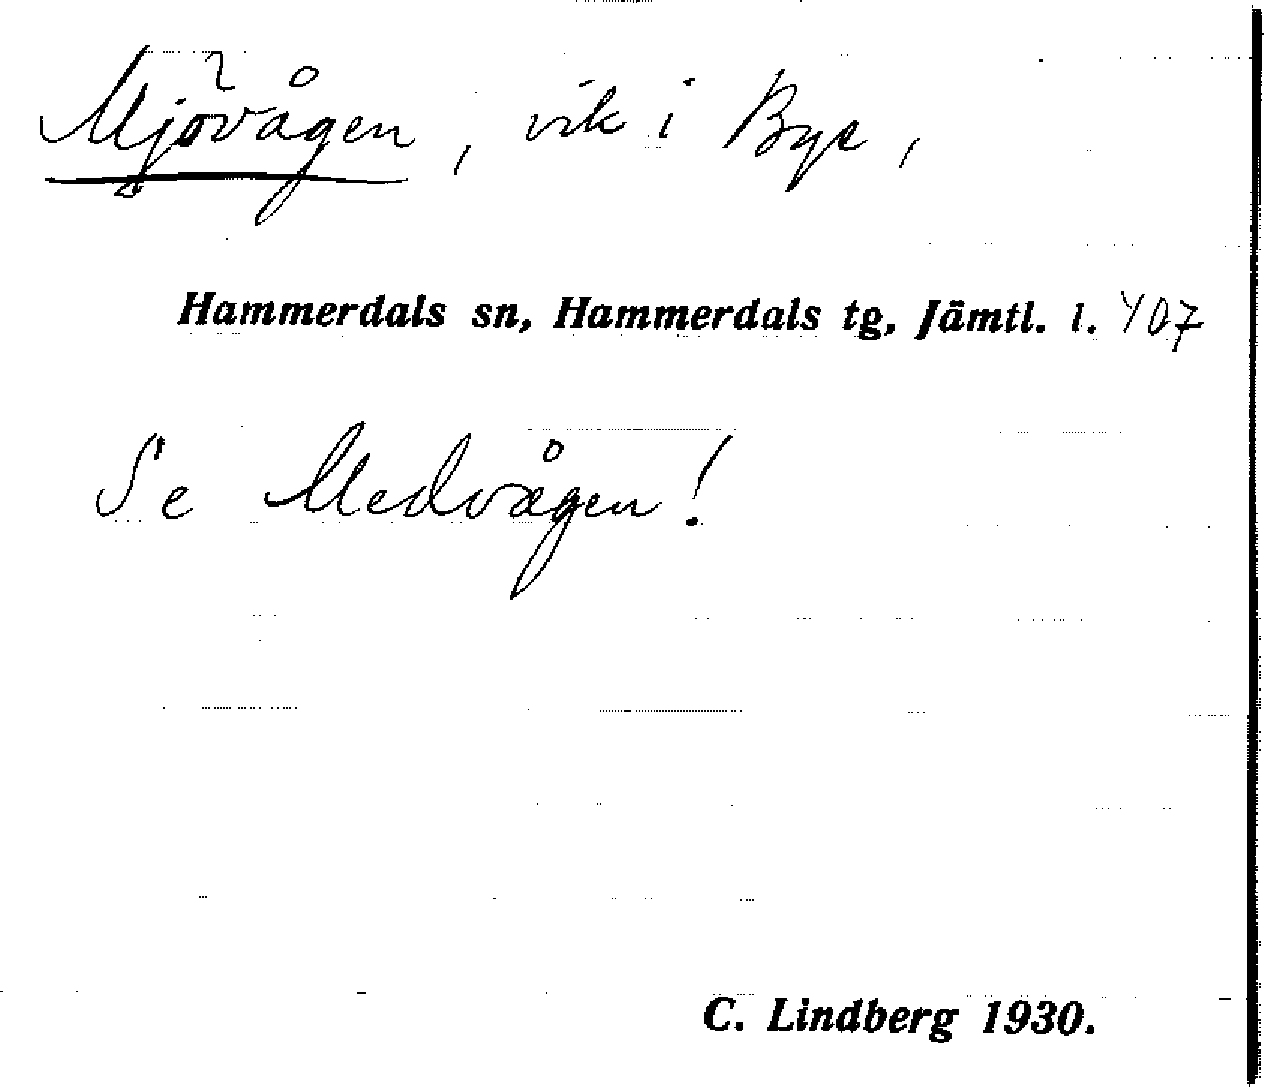 Mjövågen, vik i Bye,
Hammerdals sn, Hammerdals tg, Jämtl. l. 407
Se Medvågen!
C. Lindberg 1930.